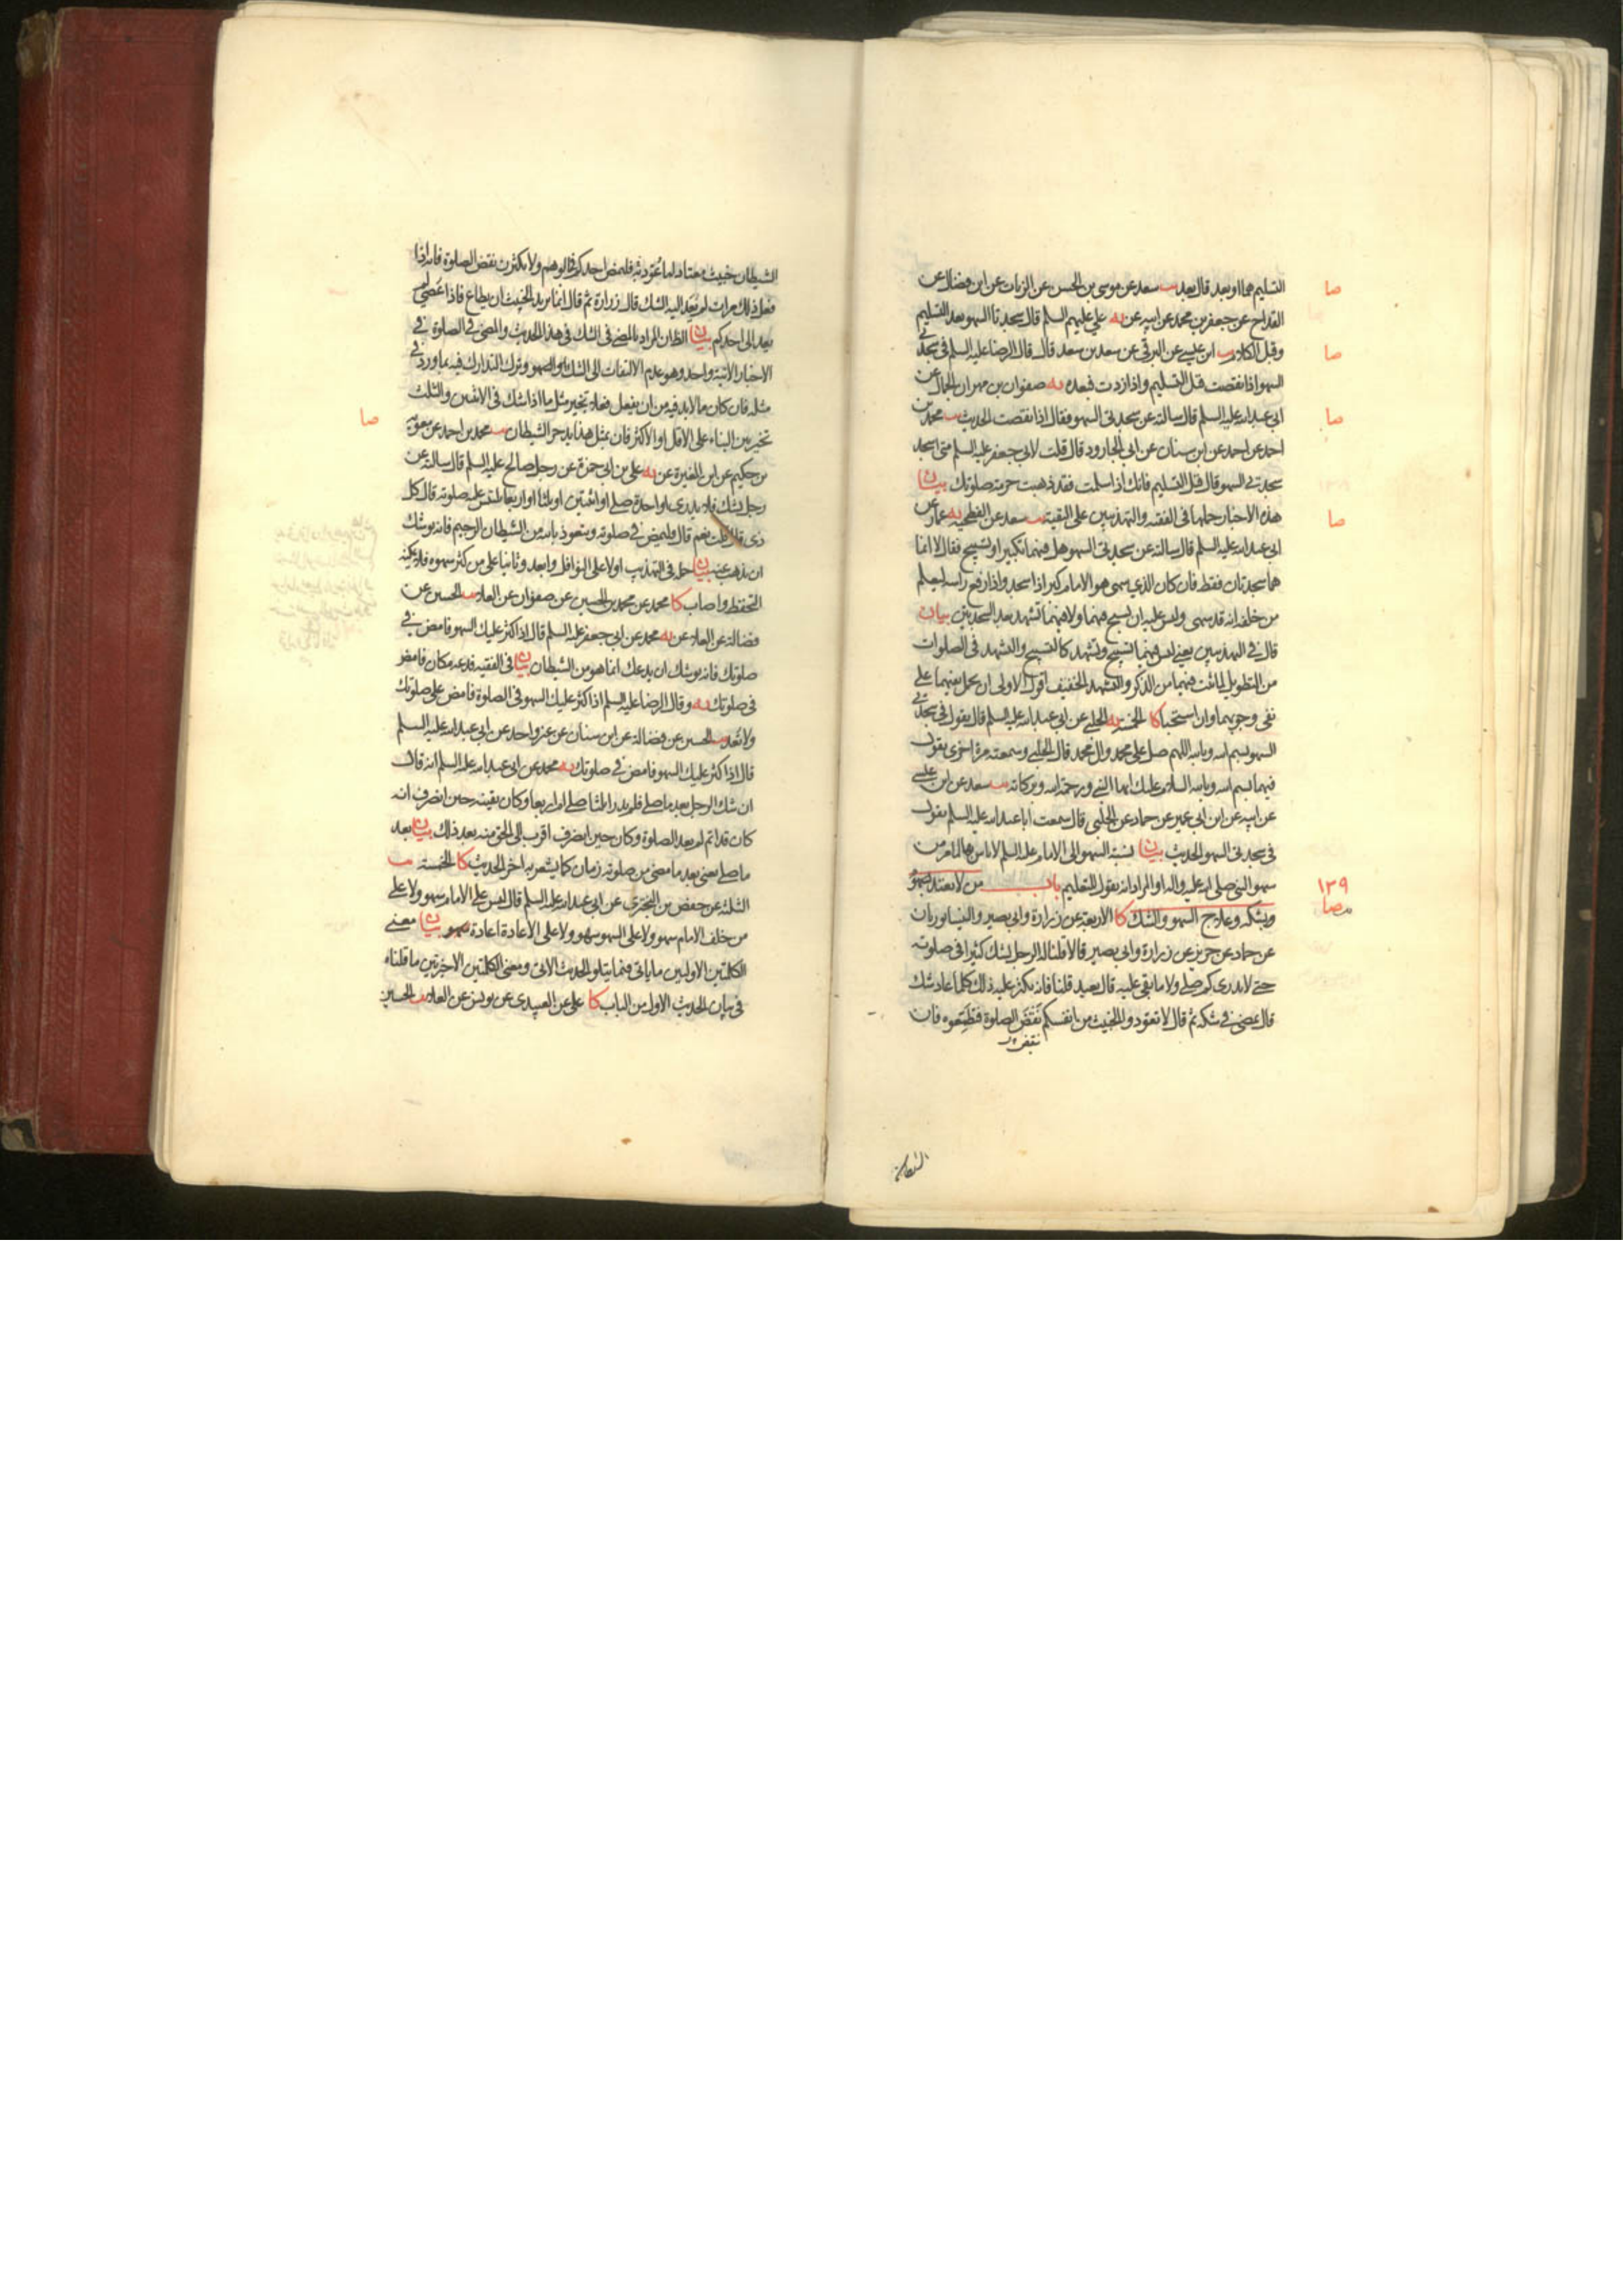 التسليم هما او بعد قال بعد يب سعد عن موسى بن الحسن عن الزيات عن ابن فضال عن
القداح عن جعفر بن محمد عن ابيه عن به علي عليهم السلم قال سجدتا السهو بعد التسليم
وقبل الكلام يب ابن عيسى عن البرقي عن سعد بن سعد قال قال الرضا عليه السلم في سجدتي
السهو اذا نقصت قبل التسليم واذا زدت فبعده به صفوان بن مهران الجمال عن
ابي عبد الله عليه السلم قال سالته عن سجدتي السهو فقال اذا نقصت الحديث يب محمد بن
احمد عن احمد عن ابن سنان عن ابي الجارود قال قلت لابي جعفر عليه السلم متى اسجد
سجدتي السهو قال قبل التسليم فانك اذا سلمت فقد ذهبت حرمة صلوتك بيان
هذه الاخبار حملها في الفقيه والتهذيبين على التقية يب سعد عن الفطحية به عمار عن
ابي عبد الله عليه السلم قال سالته عن سجدتي السهو هل فيهما تكبير او تسبيح فقال لا انما
هما سجدتان فقط فان كان الذي سهى هو الامام كبر اذا سجد واذا رفع راسه ليعلم
من خلفه انه قد سهى وليس عليه ان يسبح فيهما ولا فيهما تشهد بعد السجدتين بيان
قال في التهذيبين يعني ليس فيهما تسبيح وتشهد كالتسبيح والتشهد في الصلوات
من التطويل لما ثبت فيهما من الذكر والتشهد الخفيف اقول الاولى ان يحمل نفيهما على
نفي وجوبهما وان استحبا كا الخمسة به الحلبي عن ابي عبد الله عليه السلم قال يقول في سجدتي
السهو بسم الله وبالله اللهم صل على محمد وال محمد قال الحلبي وسمعته مرة اخرى يقول
فيهما بسم الله وبالله السلام عليك ايها النبي ورحمة الله وبركاته يب سعد عن ابن عيسى
عن ابيه عن ابن ابي عمير عن حماد عن الحلبي قال سمعت ابا عبد الله عليه السلم يقول
في سجدتي السهو الحديث بيان نسبة السهو الى الامام عليه السلم لا باس بها لما مر من
سهو النبي صلى الله عليه واله او المراد انه يقول للتعليم باب من لا يعتد بسهوه
وبشكه وعلاج السهو والشك كا الاربعة عن زرارة وابي بصير والنيسابوريان
عن حماد عن حريز عن زرارة وابي بصير قالا قلنا له الرجل يشك كثيرا في صلوته
حتى لا يدري كم صلى ولا ما بقي عليه قال يعيد قلنا فانه يكثر عليه ذلك كلما اعاد شك
قال يمضي في شكه ثم قال لا تعودوا الخبيث من انفسكم نقض الصلوة فتطمعوه فان
نقض
الشيطان
صا
صا
صا
صا
١٣٩
الشيطان خبيث معتاد لما عود به فليمض احدكم في الوهم ولا يكثرن نقض الصلوة فانه اذا
فعل ذلك مرات لم يعد اليه الشك قال زرارة ثم قال انما يريد الخبيث ان يطاع فاذا عصي لم
يعد الى احدكم بيان الظان المراد بالمضي في الشك في هذا الحديث والمضي في الصلوة في
الاخبار الاتية واحد وهو عدم الالتفات الى الشك والسهو وترك التدارك فيه بما ورد في
مثله فان كان مما لابد فيه من ان يفعل فعلا تخير مثل ما اذا شك في الاثنين والثلث
تخير بين البناء على الاقل او الاكثر فان بمثل هذا يدحر الشيطان يب محمد بن احمد عن معوية
بن حكيم عن ابن المغيرة عن به علي بن ابي حمزة عن رجل صالح عليه السلم قال سالته عن
رجل يشك فلا يدري اواحدة صلى او اثنتين او ثلثا او اربعا تلتبس عليه صلوته قال كل
ذي قال قلت نعم قال فليمض في صلوته ويتعوذ بالله من الشيطان الرجيم فانه يوشك
ان يذهب عنه بيان حمل في التهذيب اولا على النوافل وابعد وثانيا على من كثر سهوه فلا يمكنه
التحفظ واصاب كا محمد عن محمد بن الحسين عن صفوان عن العلا يب الحسين عن
فضالة عن العلا عن به محمد عن ابي جعفر عليه السلم قال اذا كثر عليك السهو فامض في
صلوتك فانه يوشك ان يدعك انما هو من الشيطان بيان في الفقيه فدعه مكان فامض
في صلوتك به وقال الرضا عليه السلم اذا كثر عليك السهو في الصلوة فامض على صلوتك
ولا تعد يب الحسين عن فضالة عن ابن سنان عن غير واحد عن ابي عبد الله عليه السلم
قال اذا كثر عليك السهو فامض في صلوتك به محمد عن ابي عبد الله عليه السلم انه قال
ان شك الرجل بعد ما صلى فلم يدر اثلثا صلى ام اربعا وكان يقينه حين انصرف انه
كان قد اتم لم يعد الصلوة وكان حين انصرف اقرب الى الحق منه بعد ذلك بيان بعد
ما صلى يعني بعد ما مضى من صلوته زمان كما يشعر به اخر الحديث كا الخمسة يب
الثلثة عن حفص بن البختري عن ابي عبد الله عليه السلم قال ليس على الامام سهو ولا على
من خلف الامام سهو ولا على السهو سهو ولا على الاعادة اعادة بيان معنى
الكلمتين الاوليين ما ياتي فيما يتلو الحديث الاتي ومعنى الكلمتين الاخرتين ما قلناه
في بيان الحديث الاول من الباب كا علي عن العبيدي عن يونس عن العلا يب الحسين
صا